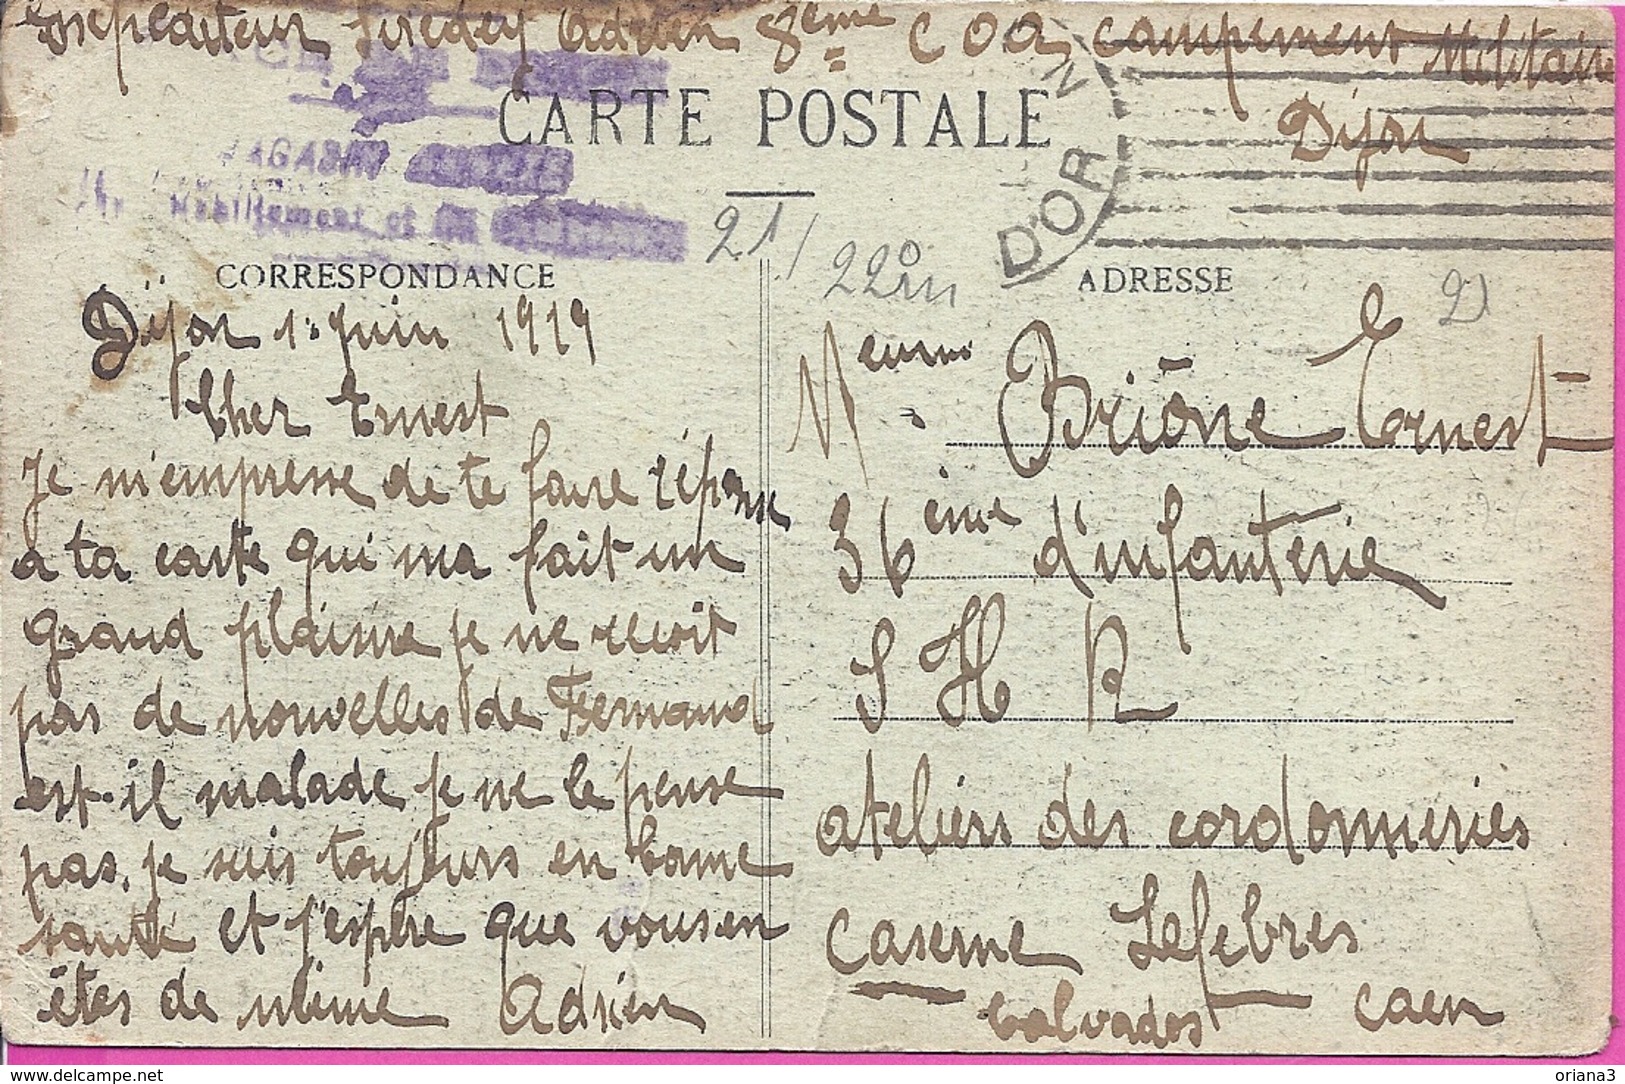 Expéditeur Firedey Adrien 8ème COA campement Militaire
Dijon
CARTE POSTALE
MAGASIN
Habillement et
D'OR
21/22 Jn
21
CORRESPONDANCE
Dijon 1. juin 1919
Cher Ernest
Je m'empresse de te faire réponse
a ta carte qui ma fait un
grand plaisire je ne recoit
pas de nouvelles de Fernand
est-il malade je ne le pense
pas. je suis toujours en bonne
santé et j'espère que vous en
êtes de même Adrien
ADRESSE
Brióne Ernest
36ème d'infanterie
S H R
ateliers des cordonneries
caserne Lefebres
Calvados Caen
oriana3
https://www.delcampe.net